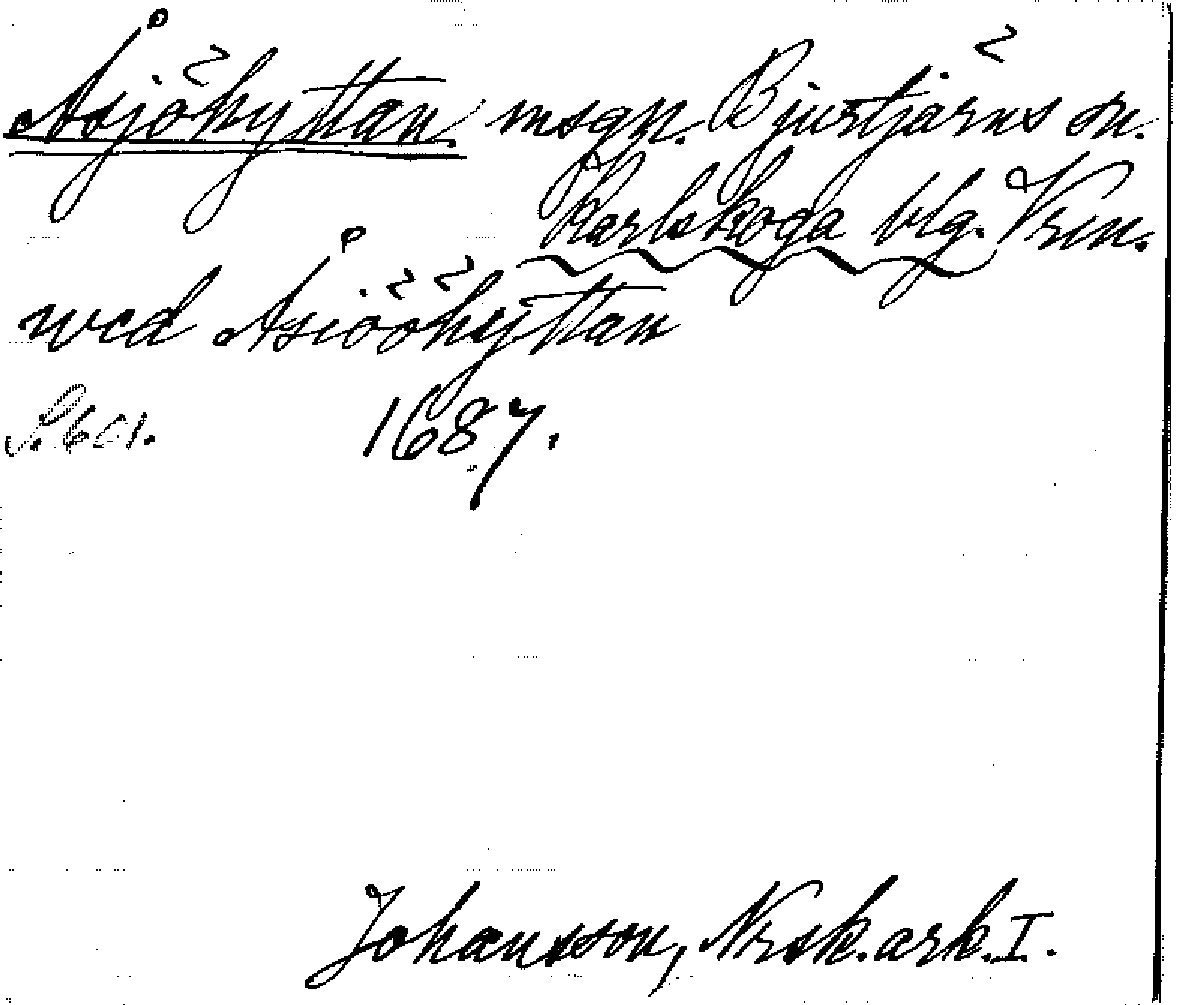 Åsjöhyttan. msgn. Bjurtjärns sn.
Karlskoga blg. Vrm.
wed Åsiööhyttan
S. 601. 1687.
Johansson, Nrsk.ark.I.